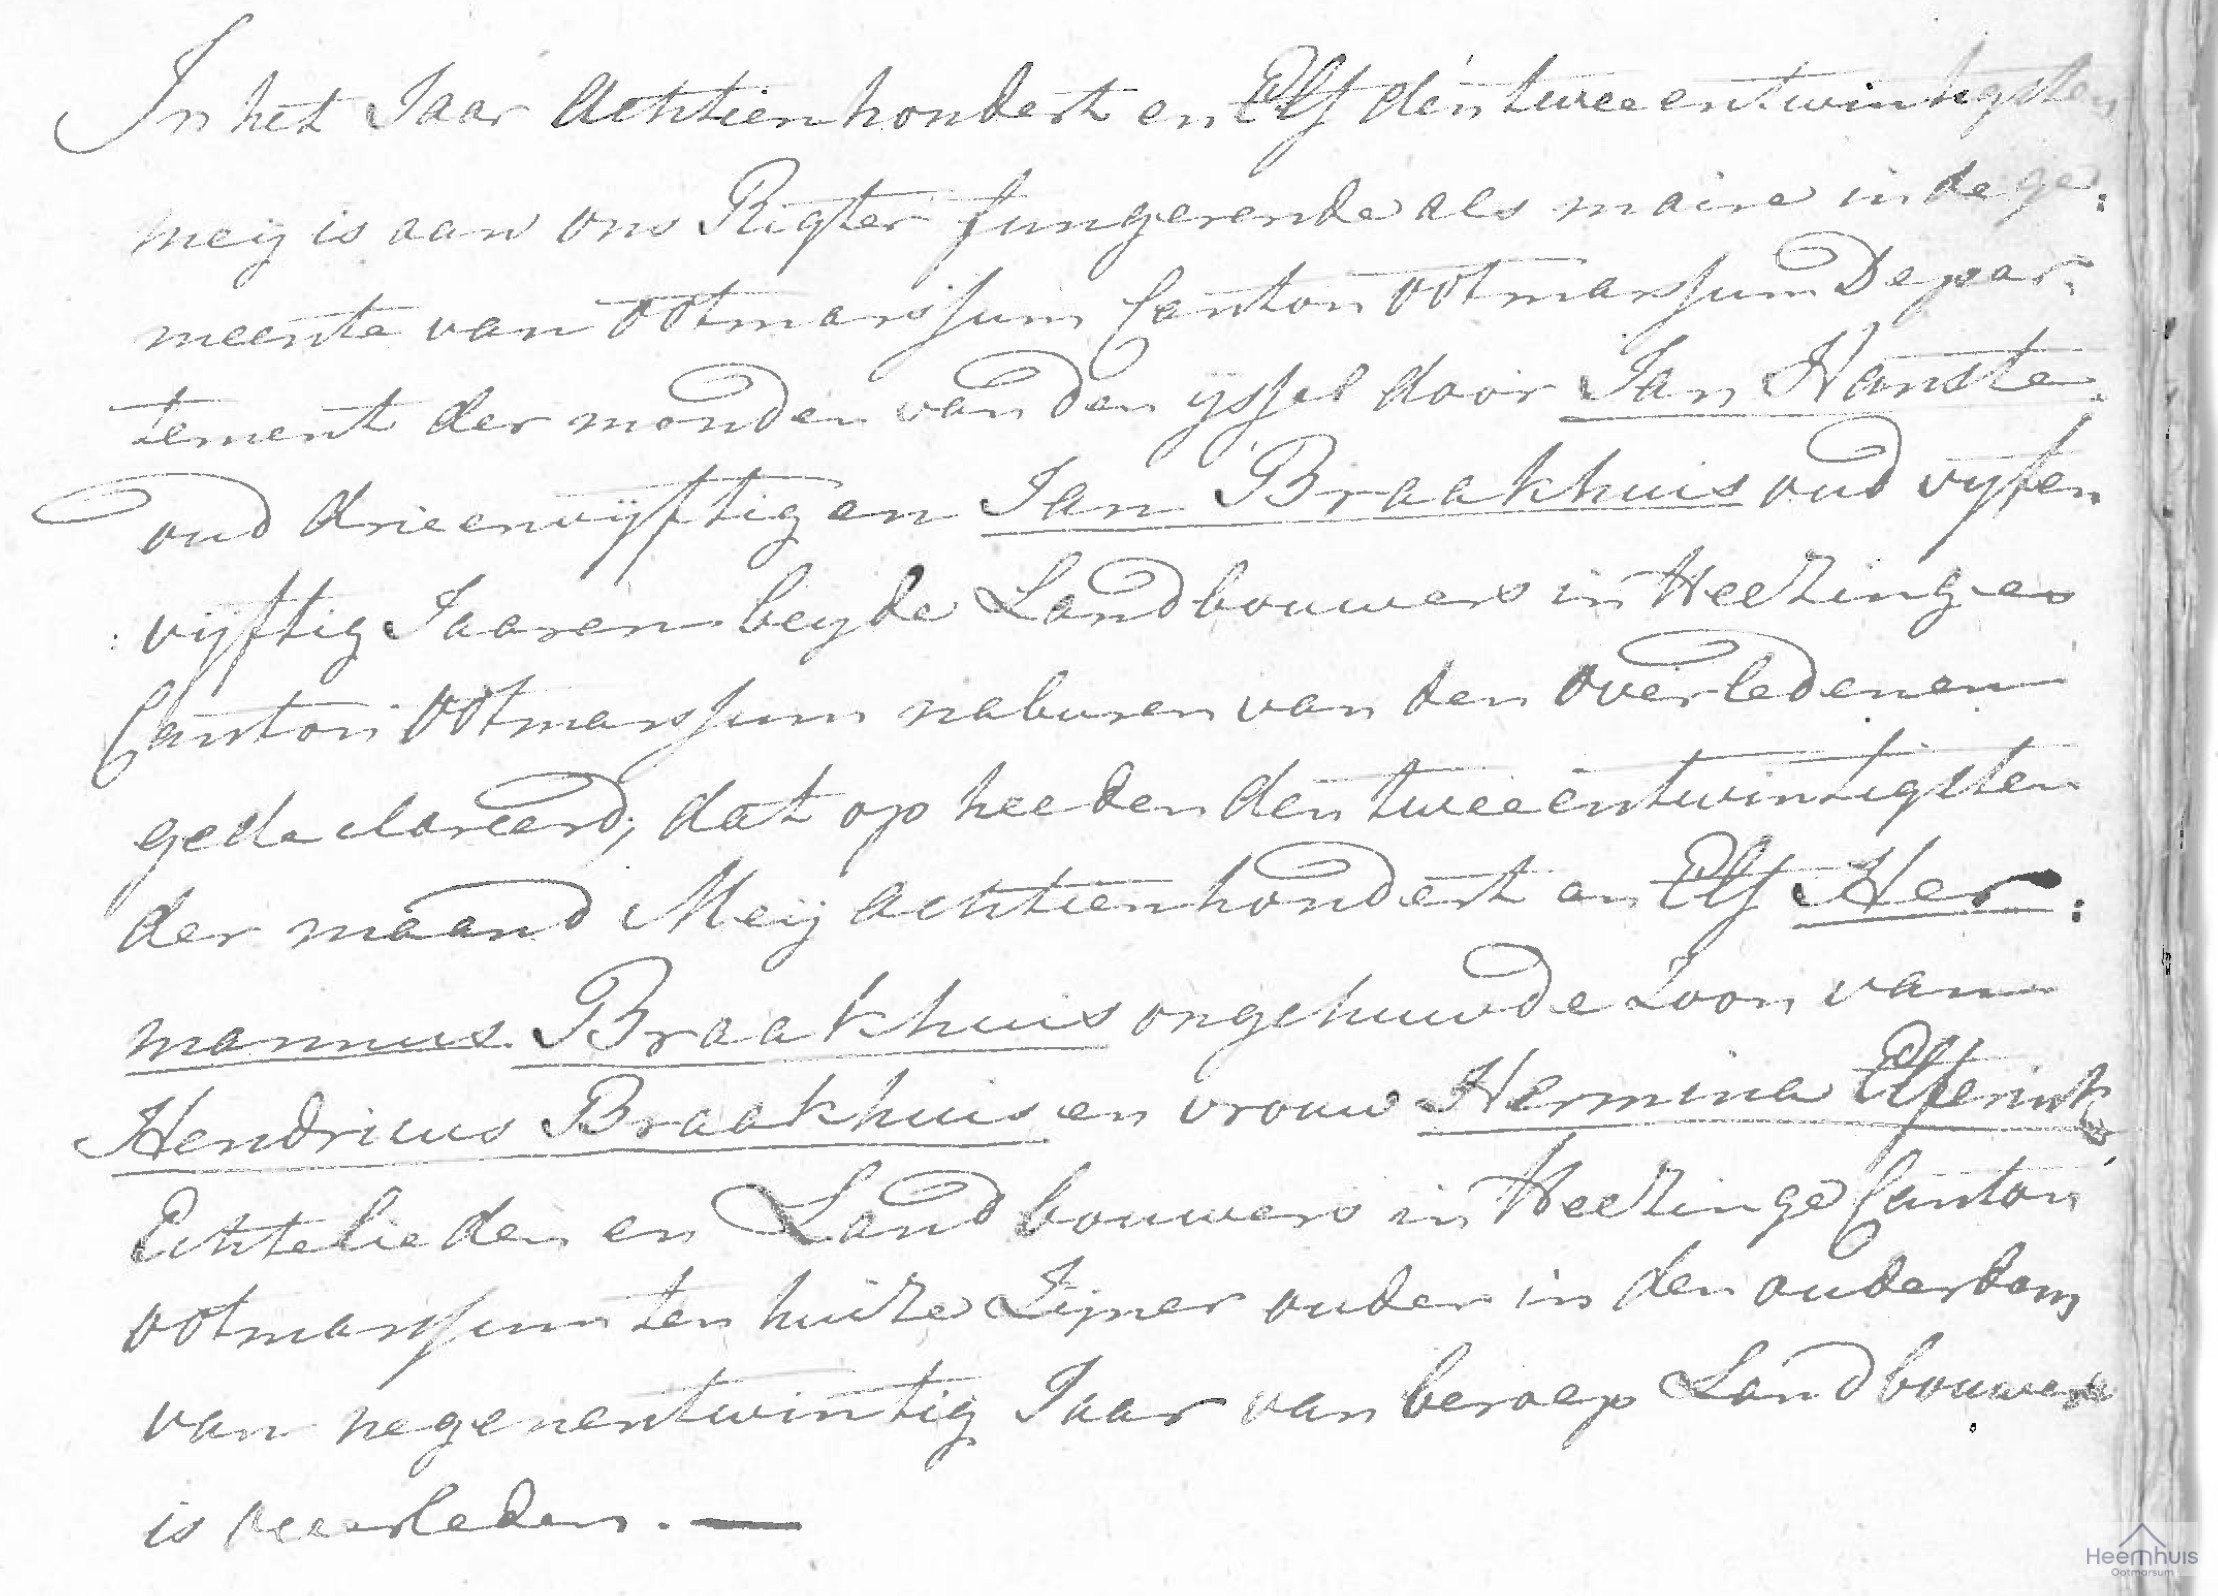 In het Jaar Achtienhondert en Elf den tweeentwintigsten
meij is aan ons Rigter fungerende als maire in de ge:
meente van Ootmarssum Canton Ootmarssum Depar:
tement der monden van den ijssel door Jan Hanste
oud drieenvijftig en Jan Braakhuis oud vijfen
vijftig Jaaren beyde Landbouwers in Heezinge
Canton Ootmarssum naburen van den overledenen
gedeclareerd, dat op heeden den tweeentwintigsten
der maand Meij Achtienhondert en Elf Her:
mannus Braakhuis ongehuwde Zoon van
Hendricus Braakhuis en vrouw Hermina Elferink
Echtelieden en Landbouwers in Heezinge Canton
Ootmarssum ten huize Zijner ouder in den ouderdom
van negenentwintig Jaar van beroep Landbouwer
is overleden. —
Heemhuis
Ootmarsum